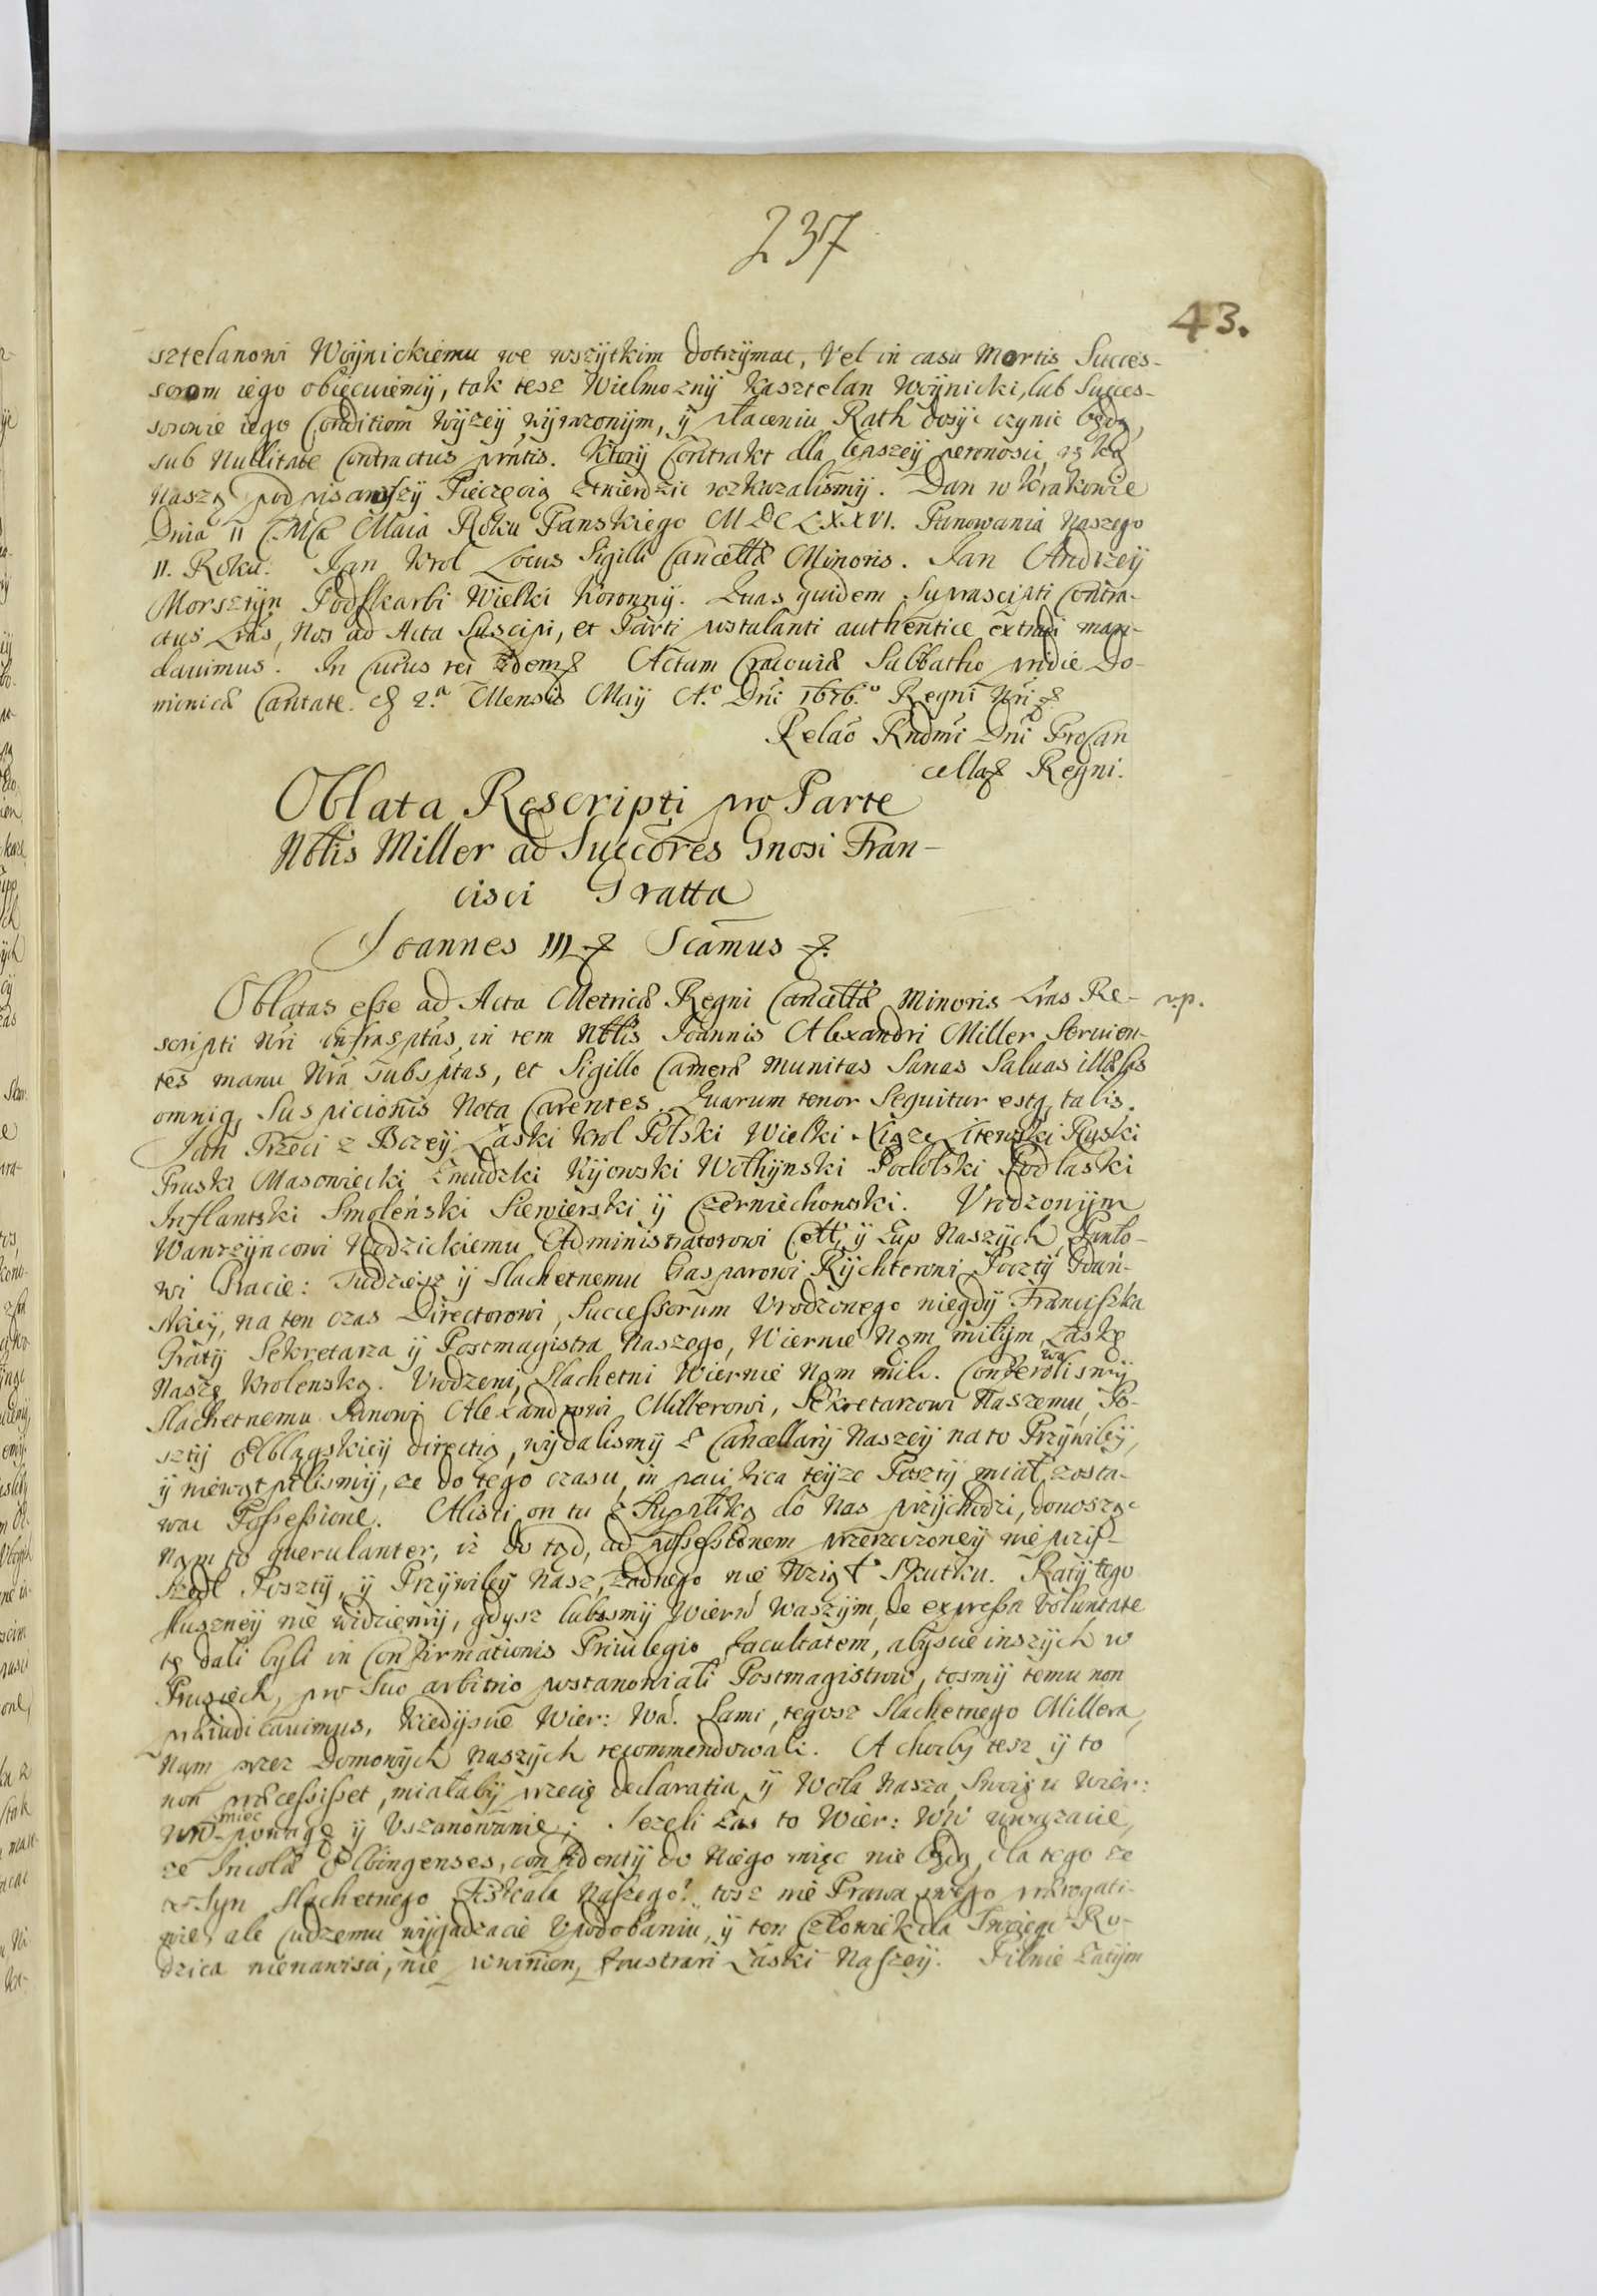 237
43.
sztelanowi Woÿnickiemu we wszÿtkim dotrzÿmac, Vel in casu Mortis Succes-
sorom iego obiecuiemÿ, tak tesz Wielmoznÿ Kasztelan Woÿnicki, lub Succes-
sorowie iego Conditiom wÿzeÿ wÿrazonÿm, ÿ płaceniu Rath dosÿc czÿnic będą,
sub Nullitate Contractus pñtis. Ktorÿ Contrakt dla lepszeÿ pewnosci, ręką
Naszą podpisawszÿ Pieczęcią ztwierdzic rozkazalismÿ. Dan w Krakowie
Dnia II Maia Roku Panskiego MDCLXXVI. Panowania Naszego
II. Roku. Jan Krol Locus Sigilli Cancellæ Minoris. Jan Andrzeÿ
Morsztÿn Podskarbi Wielki Koronnÿ. Quas quidem Suprascripti Contra-
ctus Lras, Nos ad Acta Suscipi, et Parti postulanti authentice extradi man-
dauimus. In Cuius rei fidem Actum Cracouiæ Sabbatho pridie Do-
minicæ Cantate. 2.a Mensis Maÿ A.o Dni 1676.o Regni Nri
Relão Rndmi Dni ProCan
cellar Regni.
Oblata Rescripti pro Parte
Nblis Miller ad Succores Gnosi Fran-
cisci Gratta
Joannes III Scamus
Oblatas esse ad Acta Metricæ Regni Cancellæ Minoris Lras Re- r.p.
scripti Nri infrasptas, in rem Nblis Joannis Alexandri Miller Seruien-
tes manu Nra subsptas, et Sigillo Cameræ munitas Sanas Saluas illæsas
omniq, Suspicionis Nota Carentes. Quarum tenor Sequitur estq, talis.
Jan Trzeci z Bozeÿ Łaski Krol Polski Wielki Xiąze Litewski Ruski
Pruski Masowiecki Zmudzki Kijowski Wolhÿnski Podolski Podlaski
Inflantski Smoleński Siewierski ÿ Czerniechowski. Vrodzonÿm
Wawrzÿncowi Wodzickiemu Administratorowi Cell, ÿ Zup Naszÿch, Pawło-
wi Gracie: Tudziesz ÿ Slachetnemu Gasparowi Rÿchterowi Pocztÿ Gdań-
skieÿ, na ten czas Directorowi, Successorum Vrodzonego niegdÿ Franciszka
Gratÿ Sekretarza ÿ Postmagistra Naszego, Wiernie Nam miłÿm, Łaskę
Naszę Krolewską. Vrodzeni, Slachetni Wiernie Nam mili. Conferowalismÿ
Slachetnemu Panowi Alexandrowi Millerowi, Sekretarzowi Naszemu, Po-
sztÿ Elblągskieÿ directią, wÿdalismÿ z Cancellarÿ Naszeÿ na to Przÿwileÿ,
ÿ niewątpilismÿ, ze do tego czasu, in pacifica teÿze Posztÿ miał zosta-
wac Possessione. Alisci on tu z Supliką do Nas przÿchodzi, donosząc
Nam to querulanter, iz do tąd, ad possessionem przerzeczoneÿ nie przÿs-
szedł Posztÿ, ÿ Przÿwileÿ Nasz, zadnego nie wziął Skutku. Ratÿ tego
słuszneÿ nie widziemÿ, gdysz lubosmÿ Wiernˢ Waszÿm, de expressa Voluntate
tę dali byli in Confirmationis Priuilegio facultatem, abyscie inszÿch w
Prusiech, pro Suo arbitrio postanowiali Postmagistrow, tosmÿ temu non
præiudicauimus, kiedÿscie Wier: Wa. Sami, tegosz Slachetnego Millera,
Nam przez Domowÿch Naszÿch recommendowali. A chocby tesz ÿ to
non præcessisset, miałabÿ przecię declaratia, ÿ Wola Nasza, Swoię u Wier:
WW miec powagę ÿ Vszanowanie; Jezeli zas to Wier: WW uwazacie,
ze Incolæ Elbingenses, confidentÿ do Niego miec nie będą, dla tego ze
to Syn Slachetnego Fiskala Naszego? tosz nie Prawa swego prærogati-
wie, ale Cudzemu wÿgadzacie Vpodobaniu, ÿ ten Człowiek dla Swoiego Ro-
dzica nienawisci, nie powinien, frustrari Łaski Naszeÿ. Pilnie Zatÿm